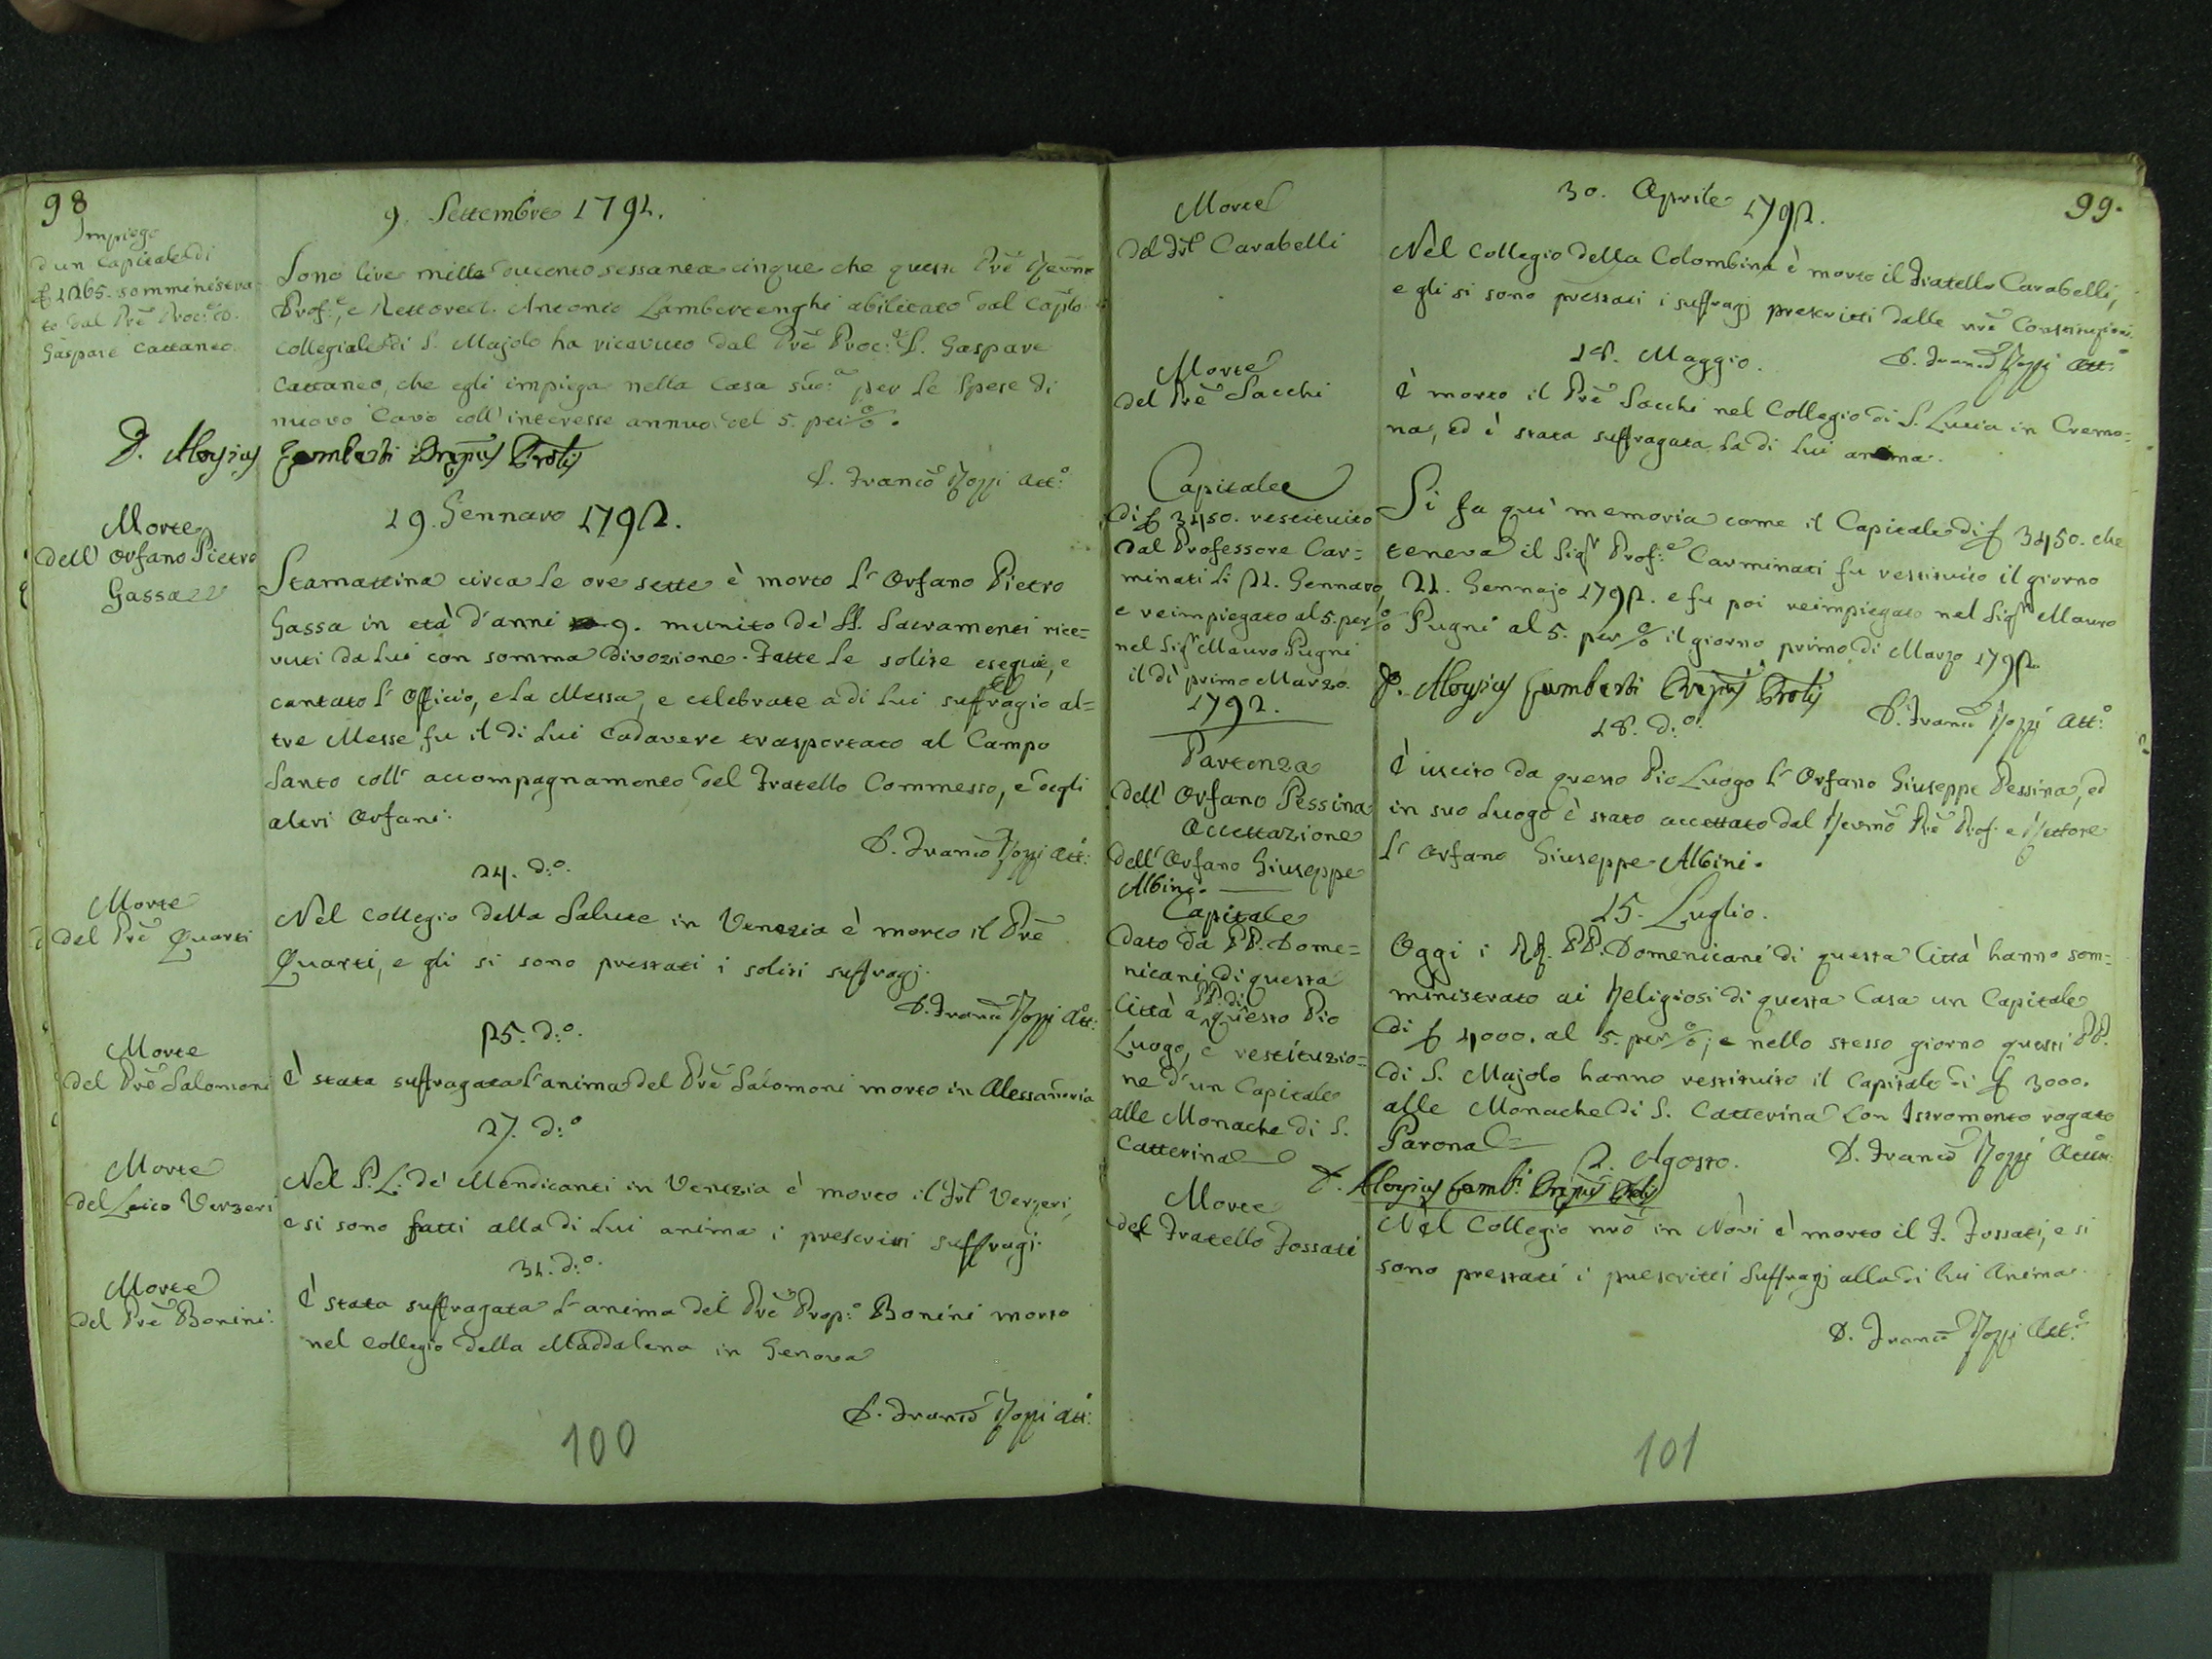 98
9. Settembre 1791.
Impiego
d'un Capitale di
£ 1265. somministra-
to dal Prē Proc.e D.
Gaspare Cattaneo.
Sono lire mille ducento sessanta cinque che questo Prē
Prof.o, e Rettore D. Antonio Lambertenghi abilitato dal Cap̄lo
Collegiale di S. Majolo ha ricevuto dal Prē Proc.e D. Gaspare
Cattaneo, che egli impiega nella Casa sud.a per le Spese di
nuovo Cavo coll' interesse annuo del 5. per %.
D. Aloysius Gamberti Præpus Prolis
D. Franc̄o Rozzi Att.o
19. Gennaro 1792.
Morte
dell' Orfano Pietro
Gassa
Stamattina circa le ore sette è morto l' Orfano Pietro
Gassa in età d'anni 9. munito de' SS. Sacramenti rice=
vuti da lui con somma divozione. Fatte le solite esequie, e
cantato l' Officio, e la Messa, e celebrate a di lui suffragio al=
tre Messe, fu il di lui Cadavere trasportato al Campo
Santo coll' accompagnamento del Fratello Commesso, e degli
altri Orfani.
D. Franc̄o Rozzi Att:
24. d:o.
Morte
del Prē Quarti
Nel Collegio della Salute in Venezia è morto il Prē
Quarti, e gli si sono prestati i soliti suffragj.
D. Franc̄o Rozzi Att:
25. d:o.
Morte
del Prē Salomoni
È stata suffragata l'anima del Prē Salomoni morto in Alessandria
27. d:o
Morte
del Laico Verzeri
Nel P. L. de' Mendicanti in Venezia è morto il Frl̄o Verzeri,
e si sono fatti alla di lui anima i prescritti suffragj.
31. d:o.
Morte
del Prē Bonini:
È stata suffragata l'anima del Prē Prop:o Bonini morto
nel Collegio della Maddalena in Genova
D. Franc̄o Rozzi Att:
100
99.
30. Aprile 1792.
Morte
del Frl̄o Carabelli
Nel Collegio della Colombina è morto il Fratello Carabelli,
e gli si sono prestati i suffragj prescritti dalle nrē Costituzioni.
18. Maggio.
D. Franc̄o Rozzi Att:
Morte
del Prē Sacchi
È morto il Prē Sacchi nel Collegio di S. Lucia in Cremo=
na, ed è stata suffragata la di lui anima.
Capitale
di £ 3450. restituito
dal Professore Car=
minati li 21. Gennaro,
e reimpiegato al 5. per %
nel Sigr Mauro Pugni
il dì primo Marzo.
1792.
Si fa qui memoria come il Capitale di £ 3450. che
teneva il Sigr Prof:e Carminati fu restituito il giorno
21. Gennajo 1792. e fu poi reimpiegato nel Sigr Mauro
Pugni al 5. per % il giorno primo di Marzo 1792.
D. Aloysius Gamberti Præpus Prolis
D. Franc̄o Rozzi Att:o
18. d:o.
Partenza
dell' Orfano Pessina
Accettazione
dell' Orfano Giuseppe
Albini.
È uscito da questo Pio Luogo l' Orfano Giuseppe Pessina, ed
in suo luogo è stato accettato dal Rev̄mo Prē Prof. e Rettore
l' Orfano Giuseppe Albini.
15. Luglio.
Capitale
dato da PP. Dome=
nicani di questa
Città a PP. di questo Pio
Luogo, e restituzio=
ne d'un Capitale
alle Monache di S.
Catterina
Oggi i RR. PP. Domenicani di questa Città hanno som=
ministrato ai Religiosi di questa Casa un Capitale
di £ 4000. al 5. per %; e nello stesso giorno questi PP.
di S. Majolo hanno restituito il Capitale di £ 3000.
alle Monache di S. Catterina con Istromento rogato
Parona
D. Franc̄o Rozzi Attūr:
D. Aloysius Gamb.i Præpus Prolis
2. Agosto.
Morte
del Fratello Fossati
Nel Collegio nrō in Novi è morto il F. Fossati, e si
sono prestati i prescritti Suffragj alla di lui Anima.
D. Franc̄o Rozzi Att.o
101